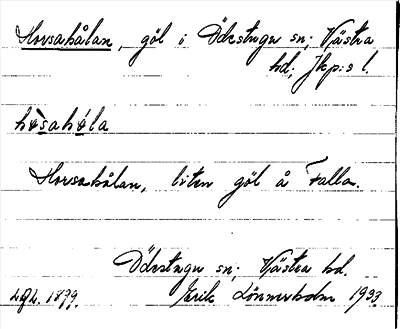 Horsahålan, göl i Ödestugu sn; Västra
hd; Jkp:s l.
hòsahóla
Horsahålan, liten göl å Falla.
Ödestugu sn; Västra hd.
1899. Erik Lönnerholm 1933